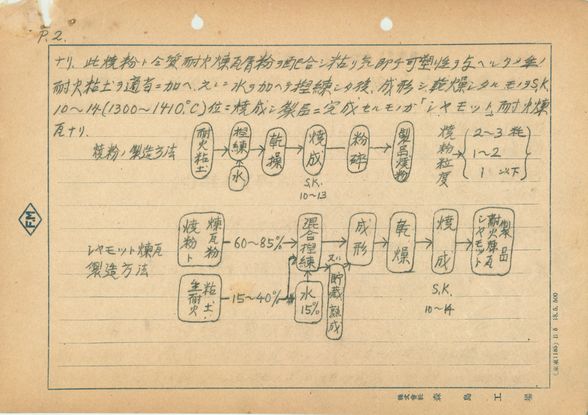 P.2.
ナリ、此焼粉ト仝質耐火煉瓦屑粉ヲ配合シ粘リ気即チ可塑性ヲ与ヘルタメ生ノ
耐火粘土ヲ適当ニ加ヘ、又ハ水ヲ加ヘテ捏練シタ後、成形シ乾燥シタルモノヲS.K.
10〜14(1300〜1410℃)位ニ焼成シ製品ニ完成セルモノガ「シャモット」耐火煉
瓦ナリ.
焼粉ノ製造方法
耐火粘土
捏練
水
乾燥
焼成
S.K.
10〜13
粉砕
製品焼粉
焼粉粒度
2〜3 粍
1〜2
1 以下
シャモット煉瓦
製造方法
焼粉ト煉瓦粉
60〜85%
生耐火粘土
15〜40%
混合捏練
水
15%
又ハ
貯蔵熟成
成形
乾燥
焼成
S.K.
10〜14
製品
耐火煉瓦
シャモット
FM
B5 18.5.500
株式会社 森島工場